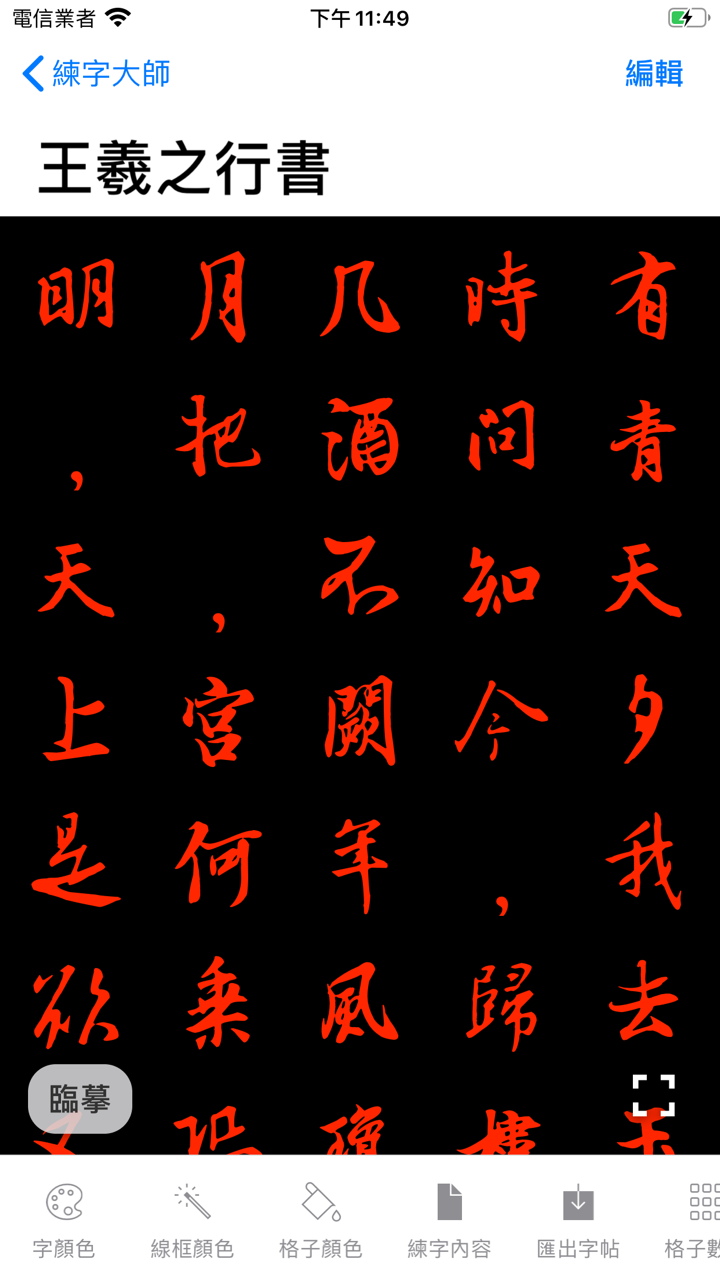 電信業者 下午 11:49
練字大師 編輯
王羲之行書
明月几時有
，把酒問青
天，不知天
上宮闕今夕
是何年，我
欲乘風歸去
臨摹
又恐瓊樓玉
字顏色 線框顏色 格子顏色 練字內容 匯出字帖 格子數